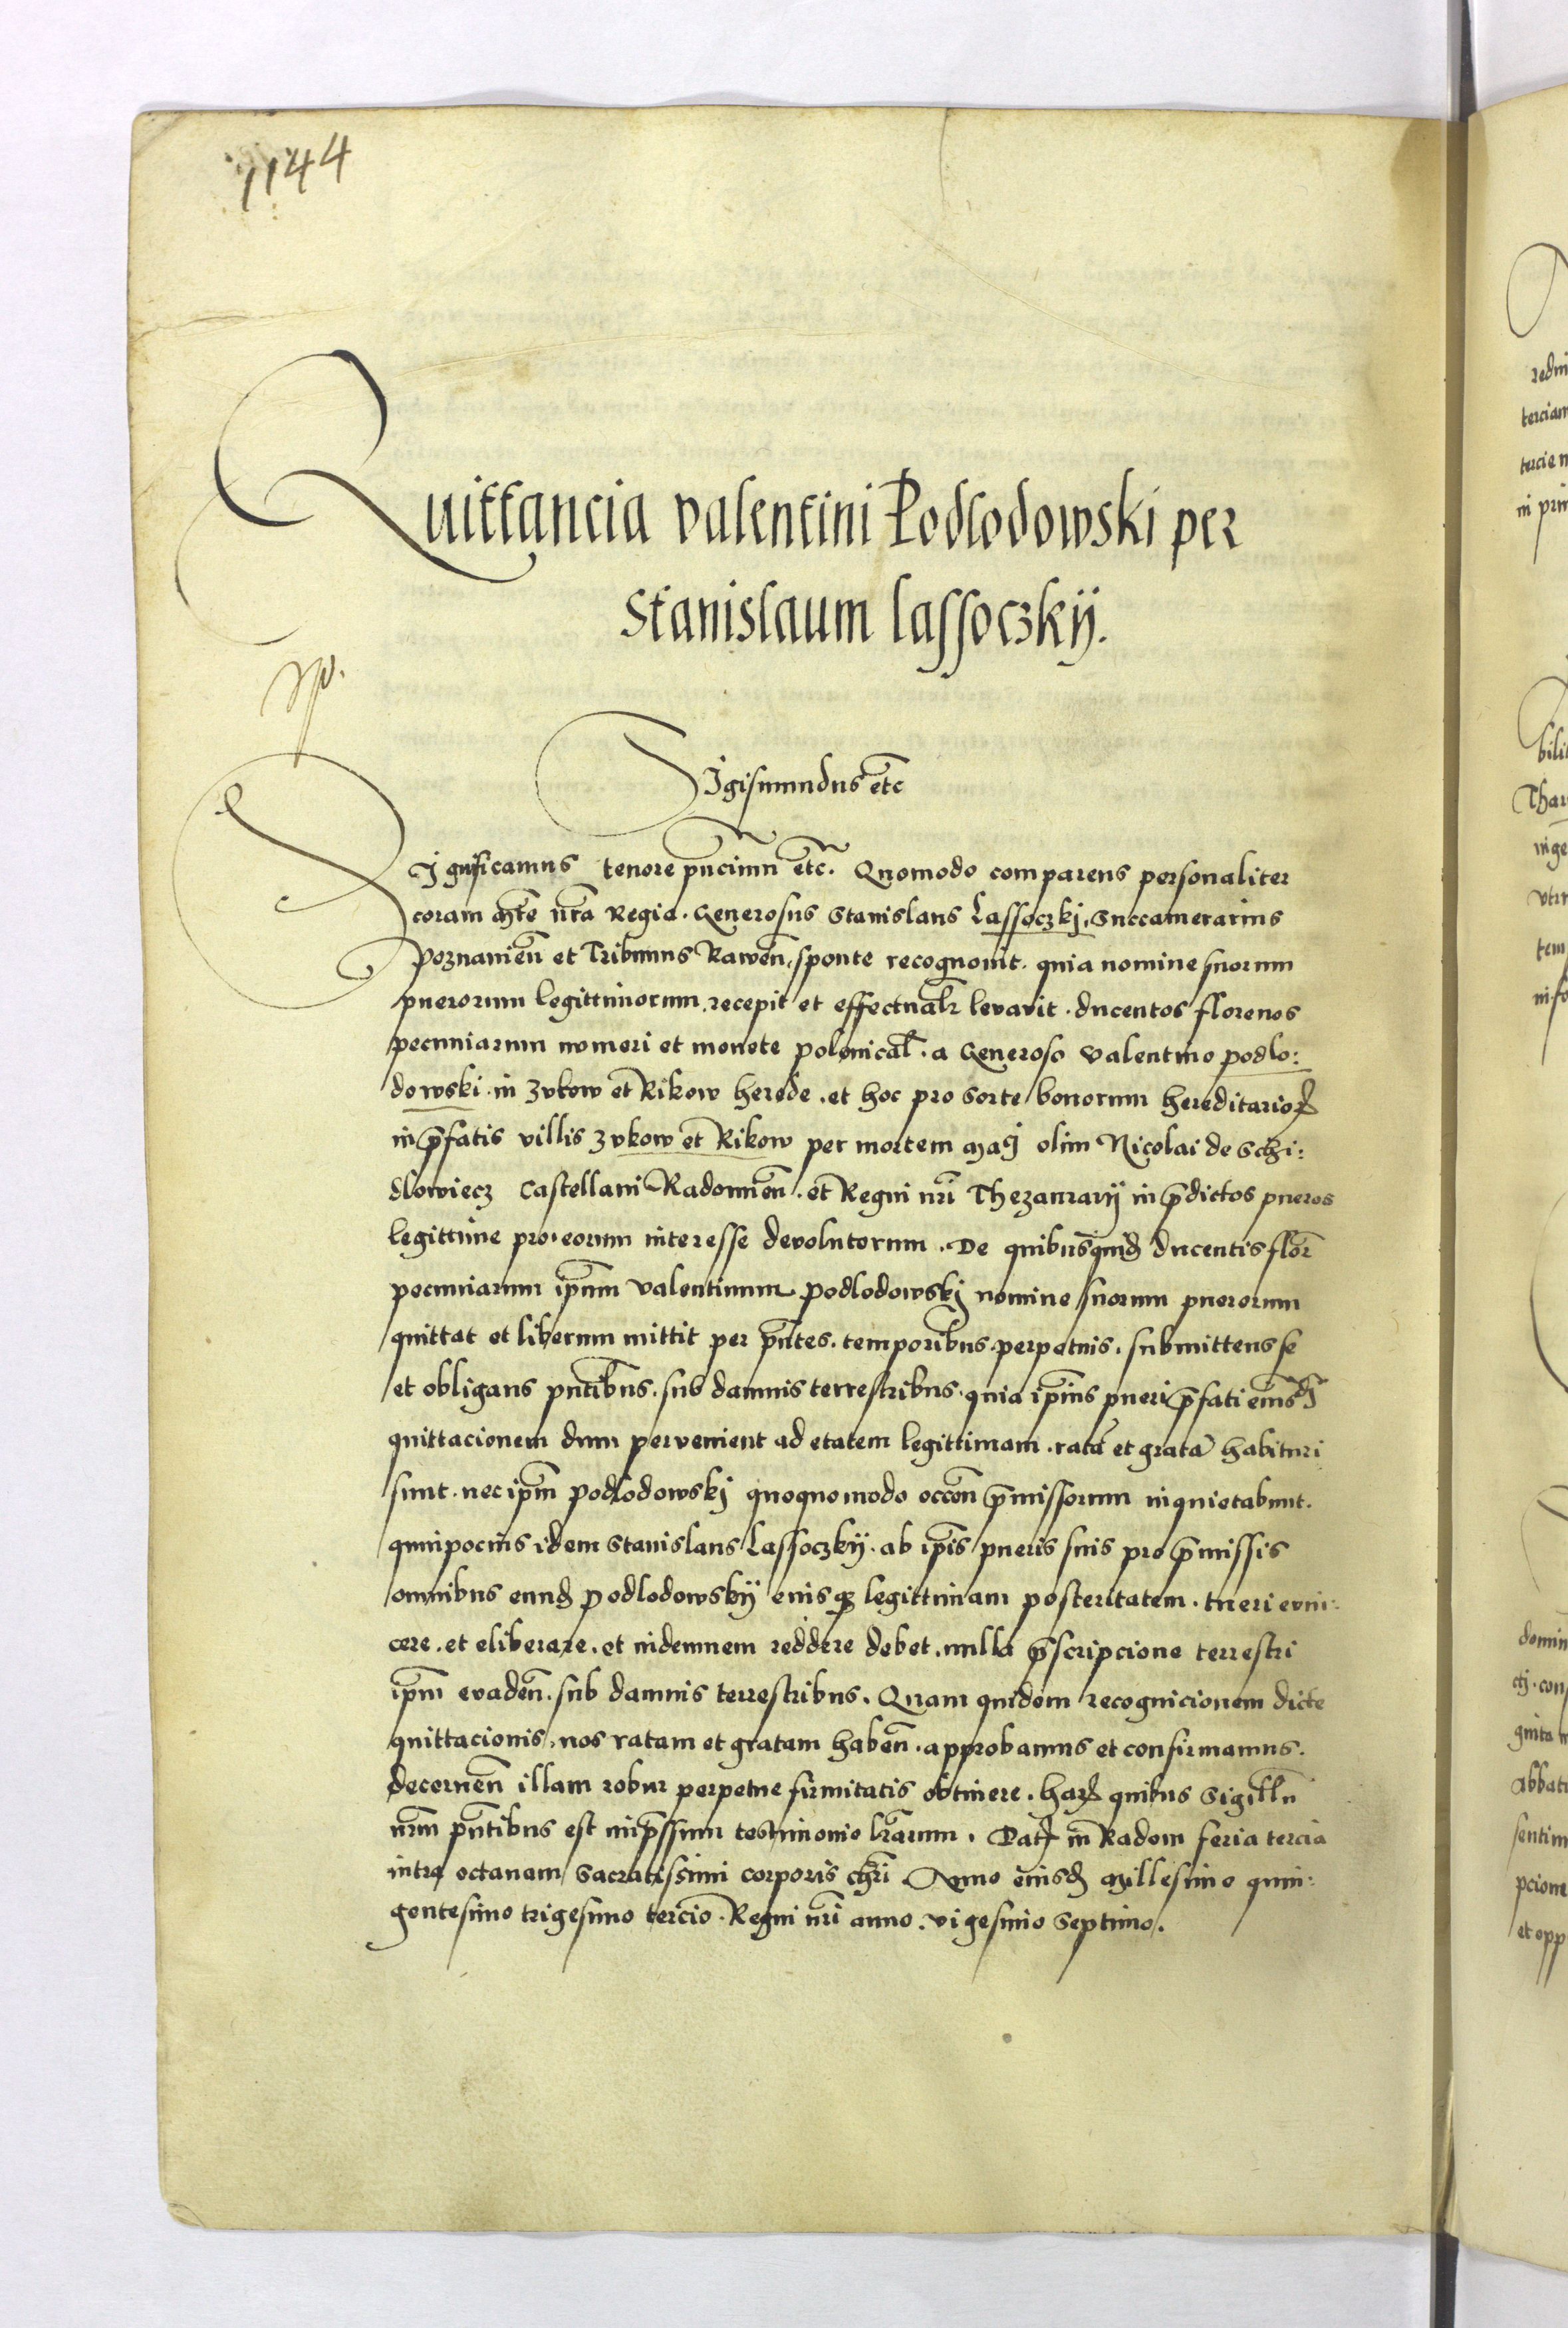 1144
Quittancia valentini Podlodowski per
Stanislaum lassoczkÿ.
Sigismundus etc̄
Significamus tenore pn̄cium etc̄. Quomodo comparens personaliter
coram Mt̄e nr̄a Regia. Generosus Stanislaus Lassoczkj, Succamerarius
Poznanien̄ et Tribunus Rawen̄, sponte recognouit. quia nomine suorum
puerorum legittimorum, recepit et effectualr̄ levavit. ducentos florenos
pecuniarum numeri et monete polonical̄. a Generoso Valentino podlo:
dowski. in Zvkow et Rikow herede. et hoc pro sorte bonorum hereditarioꝝ
in p̄fatis villis Zvkow et Rikow per mortem Magci olim Nicolai de Schi:
dlowiecz Castellani Radomien̄. et Regni nr̄i Thezaurarÿ in p̄dictos pueros
legittime pro eorum interesse devolutorum. De quibusquid̄ ducentis flor̄
pecuniarum ip̄um Valentinum podlodowskj nomine suorum puerorum
quittat et liberum mittit per pn̄tes. temporibus perpetuis. submittens se
et obligans pn̄tibus. sub damnis terrestribus. quia ip̄ius pueri p̄fati eiusd̄
quittacionem dum pervenient ad etatem legittimam. ratā et gratā habituri
sunt. nec ip̄m podlodowskj quoquomodo occōn p̄missorum inquietabunt.
quinpocius idem Stanislaus Lassoczkÿ. ab ip̄is pueris suis pro p̄missis
omnibus eund̄ podlodowskÿ eiusqꝫ legittimam posteritatem. tueri evin:
cere. et eliberare. et indemnem reddere debet. nulla p̄scripcione terrestri
ip̄m evaden̄. sub damnis terrestribus. Quam quidem recognicionem dicte
quittacionis. nos ratam et gratam haben̄. approbamus et confirmamus.
decernen̄ illam robur perpetue firmitatis obtinere. Haꝝ quibus Sigillū
nr̄m pn̄tibus est imp̄ssum testimonio lr̄arum. Datꝝ in Radom feria tercia
intra octauam Sacratissimi corporis chr̄i Anno eiusd̄ Millesimo quin:
gentesimo trigesimo tercio. Regni nr̄i anno. vigesimo Septimo.